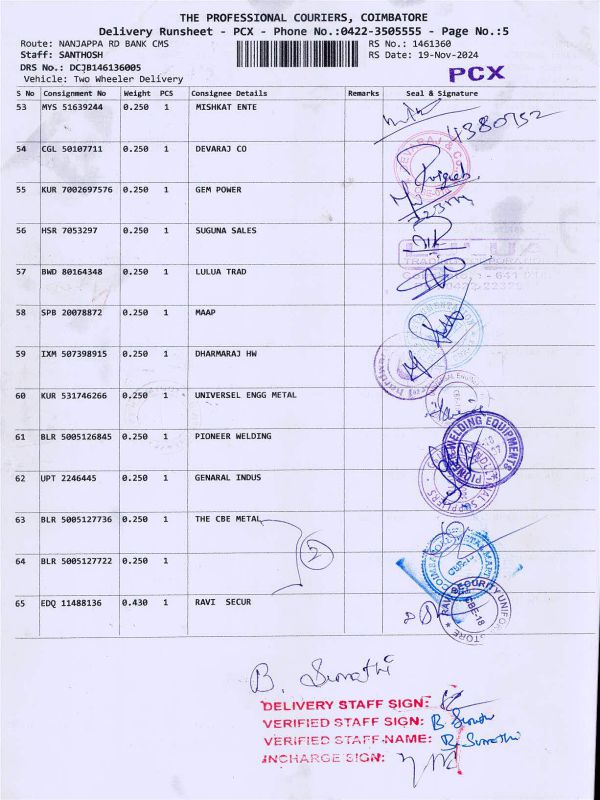 THE PROFESSIONAL COURIERS, COIMBATORE
Delivery Runsheet - PCX - Phone No.:0422-3505555 - Page No.:5
Route: NANJAPPA RD BANK CMS RS No.: 1461360
Staff: SANTHOSH RS Date: 19-Nov-2024
DRS No.: DCJB146136005
Vehicle: Two Wheeler Delivery PCX
S No Consignment No Weight PCS Consignee Details Remarks Seal & Signature
53 MYS 51639244 0.250 1 MISHKAT ENTE
54 CGL 50107711 0.250 1 DEVARAJ CO
55 KUR 7002697576 0.250 1 GEM POWER
56 HSR 7053297 0.250 1 SUGUNA SALES
57 BWD 80164348 0.250 1 LULUA TRAD
58 SPB 20078872 0.250 1 MAAP
59 IXM 507398915 0.250 1 DHARMARAJ HW
60 KUR 531746266 0.250 1 UNIVERSEL ENGG METAL
61 BLR 5005126845 0.250 1 PIONEER WELDING
WELDING EQUIPMENTS
62 UPT 2246445 0.250 1 GENARAL INDUS
63 BLR 5005127736 0.250 1 THE CBE METAL
2
64 BLR 5005127722 0.250 1
65 EDQ 11488136 0.430 1 RAVI SECUR
RAVI SECURITY UNIFORM STORE
CBE-18
B. Sumathi
DELIVERY STAFF SIGN:
VERIFIED STAFF SIGN: B. Sumathi
VERIFIED STAFF NAME: B. Sumathi
INCHARGE SIGN: